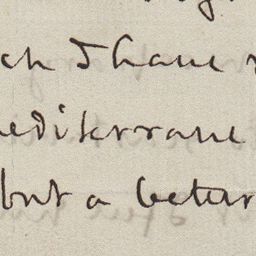 ch I have
mediterrane
but a better